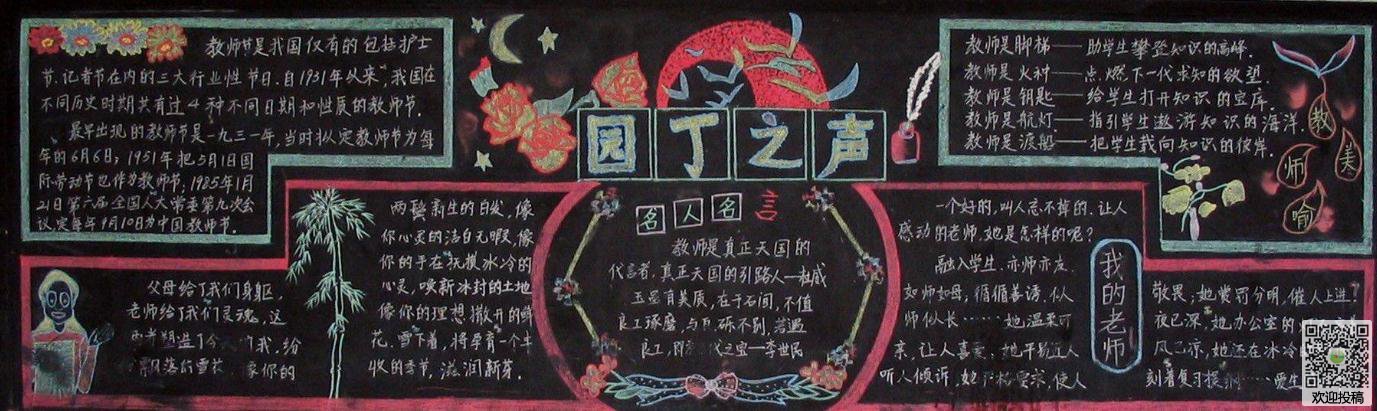 教师节是我国仅有的包括护士
节、记者节在内的三大行业性节日。自1931年以来,我国在
不同历史时期共有过4种不同日期和性质的教师节。
最早出现的教师节是一九三一年,当时拟定教师节为每
年的6月6日;1951年把5月1日国
际劳动节也作为教师节;1985年1月
21日第六届全国人大常委第九次会
议定每年9月10日为中国教师节。
园丁之声
教师是脚梯——助学生攀登知识的高峰.
教师是火种——点燃下一代求知的欲望.
教师是钥匙——给学生打开知识的宝库.
教师是航灯——指引学生遨游知识的海洋.
教师是渡船——把学生载向知识的彼岸.
教
师
美
喻
父母给了我们身躯,
老师给了我们灵魂,这
我,给
飘落的雪花 你的
两鬓新生的白发,像
你心灵的洁白无暇,像
你的手在抚摸冰冷的
心灵,唤新冰封的土地
像你的理想撒开的鲜
花,雪下着,将孕育一个丰
收的季节,滋润新芽.
名人名言
教师是真正天国的
代言者,真正天国的引路人—杜威
玉虽有美质,在于石间,不值
良工琢磨,与瓦砾不别,若遇
良工,即为 代之宝—李世民
一个好的,叫人忘不掉的,让人
感动的老师,她是怎样的呢?
融入学生,亦师亦友.
如师如母,循循善诱.似
师似长……她温柔可
亲,让人喜爱,她平易近人
听人倾诉,她严格要求,使人
我的老师
敬畏;她赏罚分明,催人上进!
夜已深,她办公室的
风已凉,她还在冰冷的
刻着复习提纲……爱生
欢迎投稿